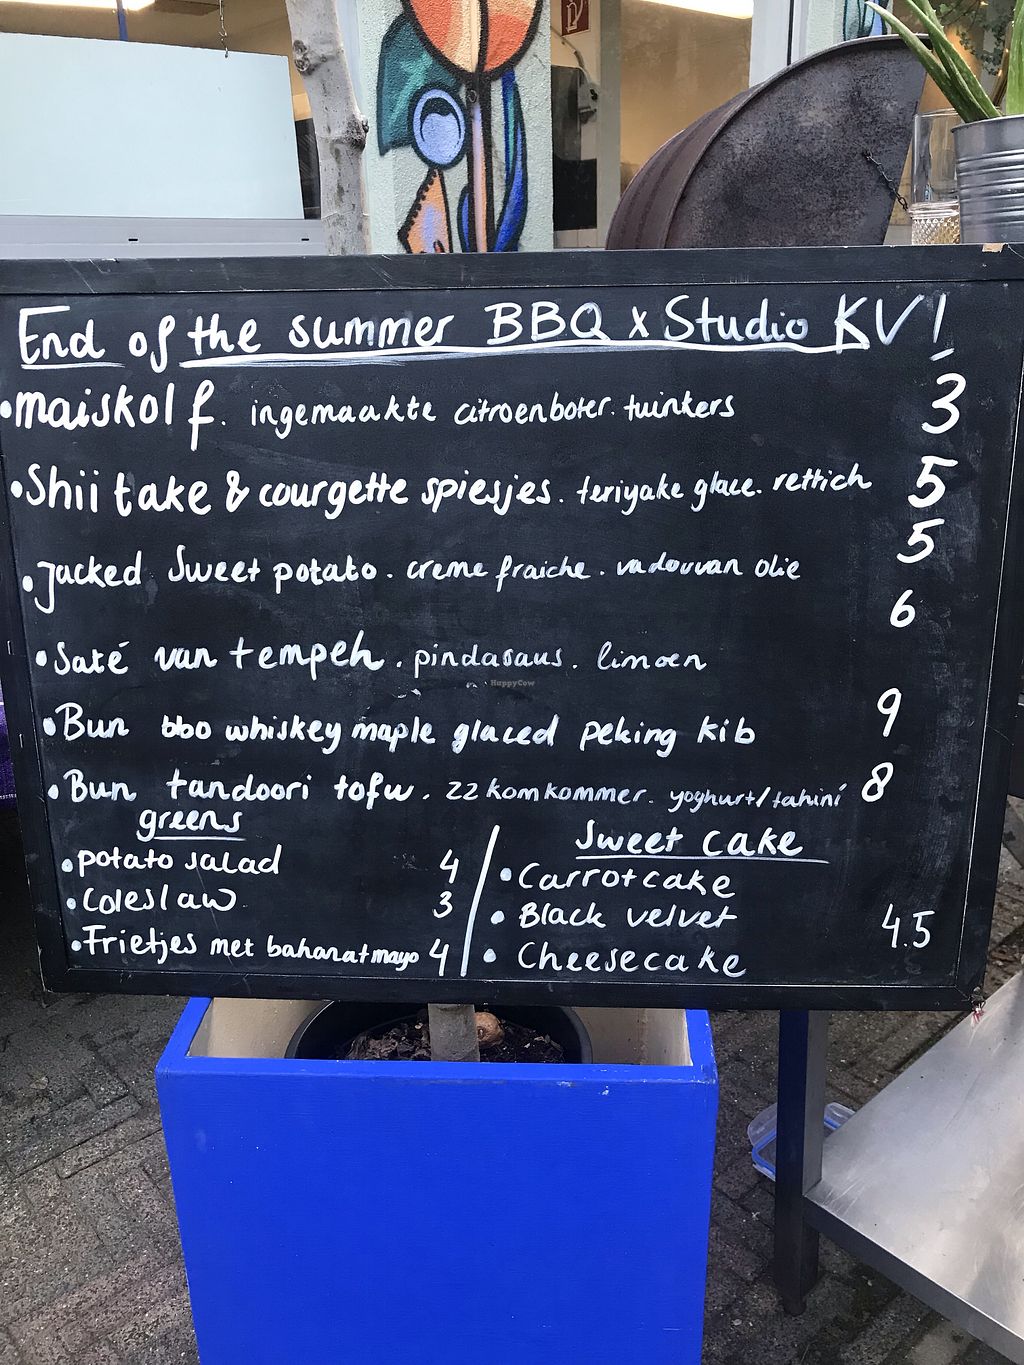 End of the summer BBQ x Studio KV!
•maiskolf. ingemaakte citroenboter. tuinkers 3
•Shii take & courgette spiesjes. teriyake glace. rettich 5
•Jacked Sweet potato. creme fraiche. vadouvan olie 5
•Saté van tempeh. pindasaus. limoen 6
•Bun bbq whiskey maple glaced peking kib 9
•Bun tandoori tofu. zz komkommer. yoghurt/tahini 8
greens
•potato salad 4
•Coleslaw 3
•Frietjes met baharatmayo 4
Sweet cake
•Carrotcake
•Black velvet 4.5
•Cheesecake
HappyCow